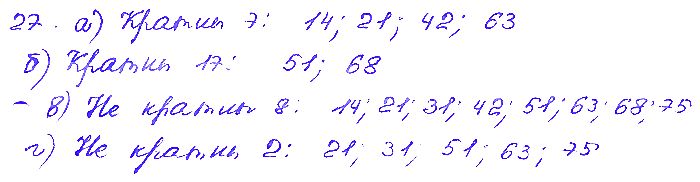 27. а) Кратны 7: 14; 21; 42; 63
б) Кратны 17: 51; 68
- в) Не кратны 8: 14; 21; 31; 42; 51; 63; 68; 75
г) Не кратны 2: 21; 31; 51; 63; 75